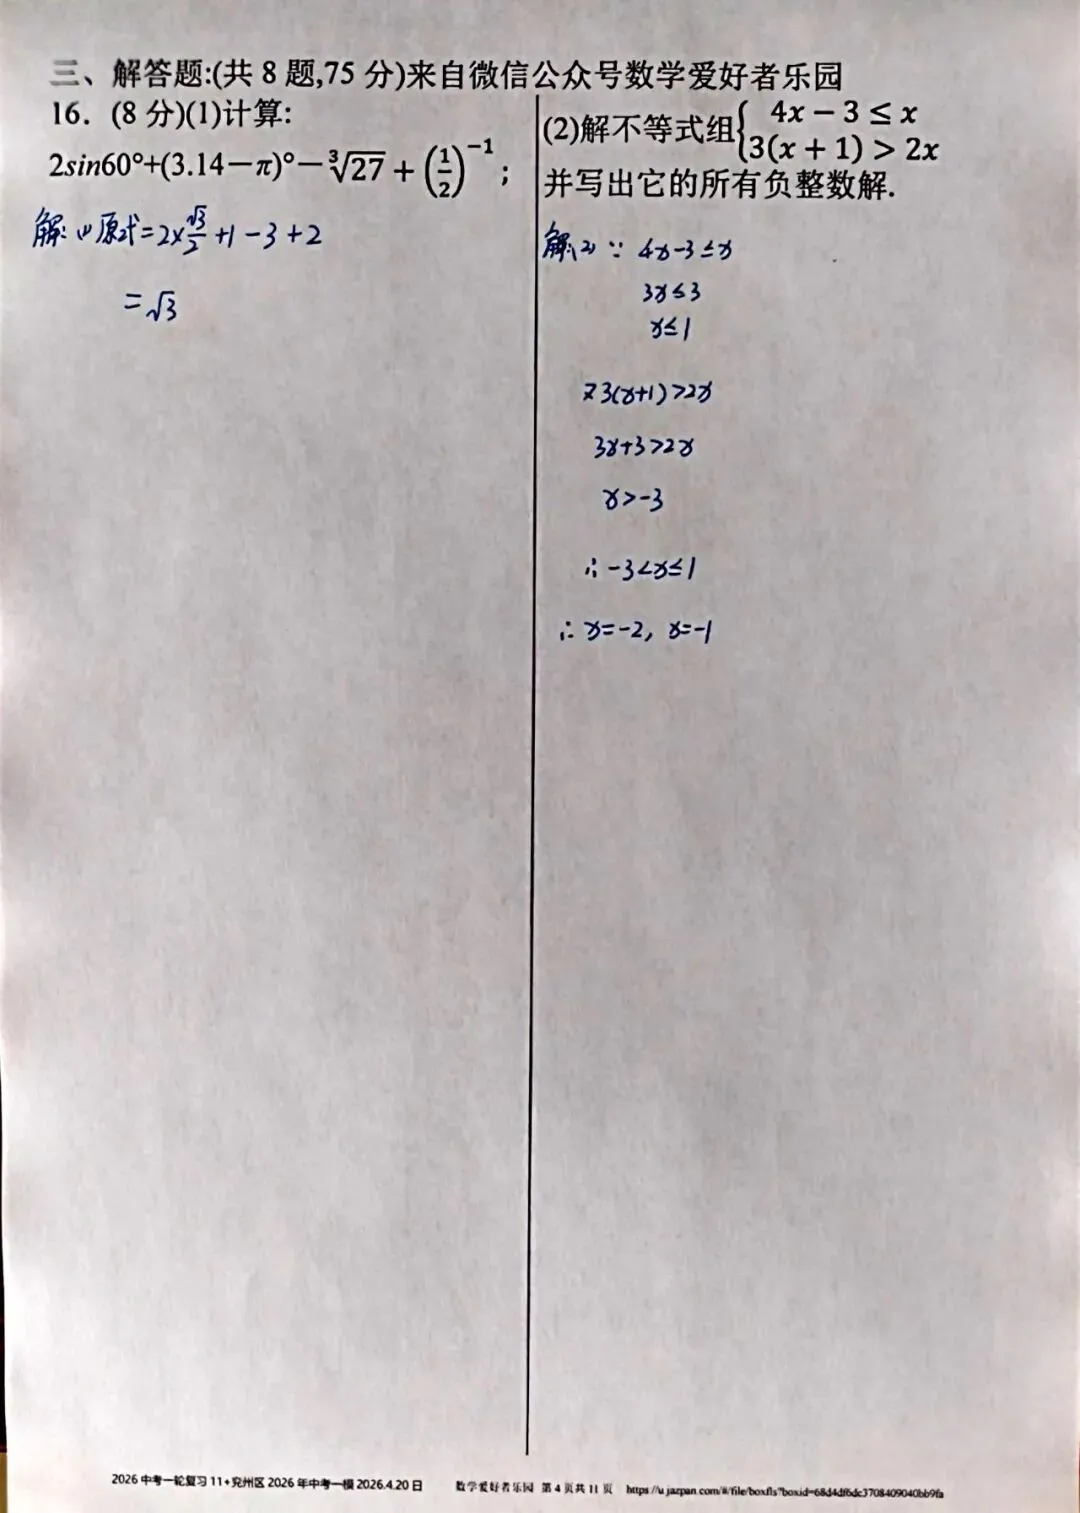 三、解答题:(共 8 题,75 分)来自微信公众号数学爱好者乐园
16. (8 分)(1)计算:
2sin60°+(3.14－π)⁰－∛27 + (1/2)⁻¹ ;
解: (1) 原式=2×√3/2 +1－3+2
=√3
(2)解不等式组{4x − 3 ≤ x
3(x + 1) > 2x
并写出它的所有负整数解.
解:(2) ∵ 4x-3≤x
3x≤3
x≤1
又3(x+1)>2x
3x+3>2x
x>-3
∴ -3<x≤1
∴ x=-2, x=-1
2026 中考一轮复习 11+兖州区 2026 年中考一模 2026.4.20 日 数学爱好者乐园 第 4 页共 11 页 https://u.jazpan.com/#/file/boxfls?boxid=68d4df6dc3708409040bb9fa